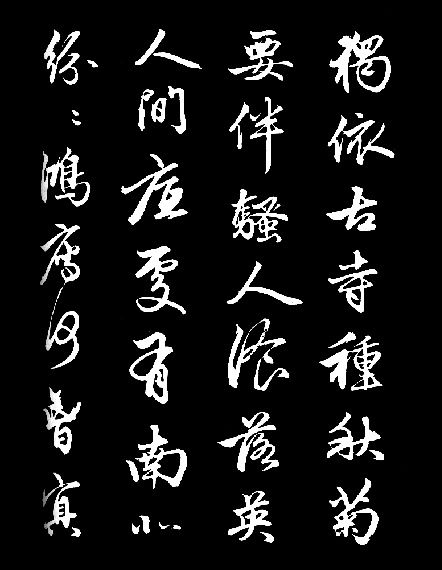 獨依古寺種秋菊
要伴騷人湌落英
人間底處有南北
紛〻鴻鴈何曾冥